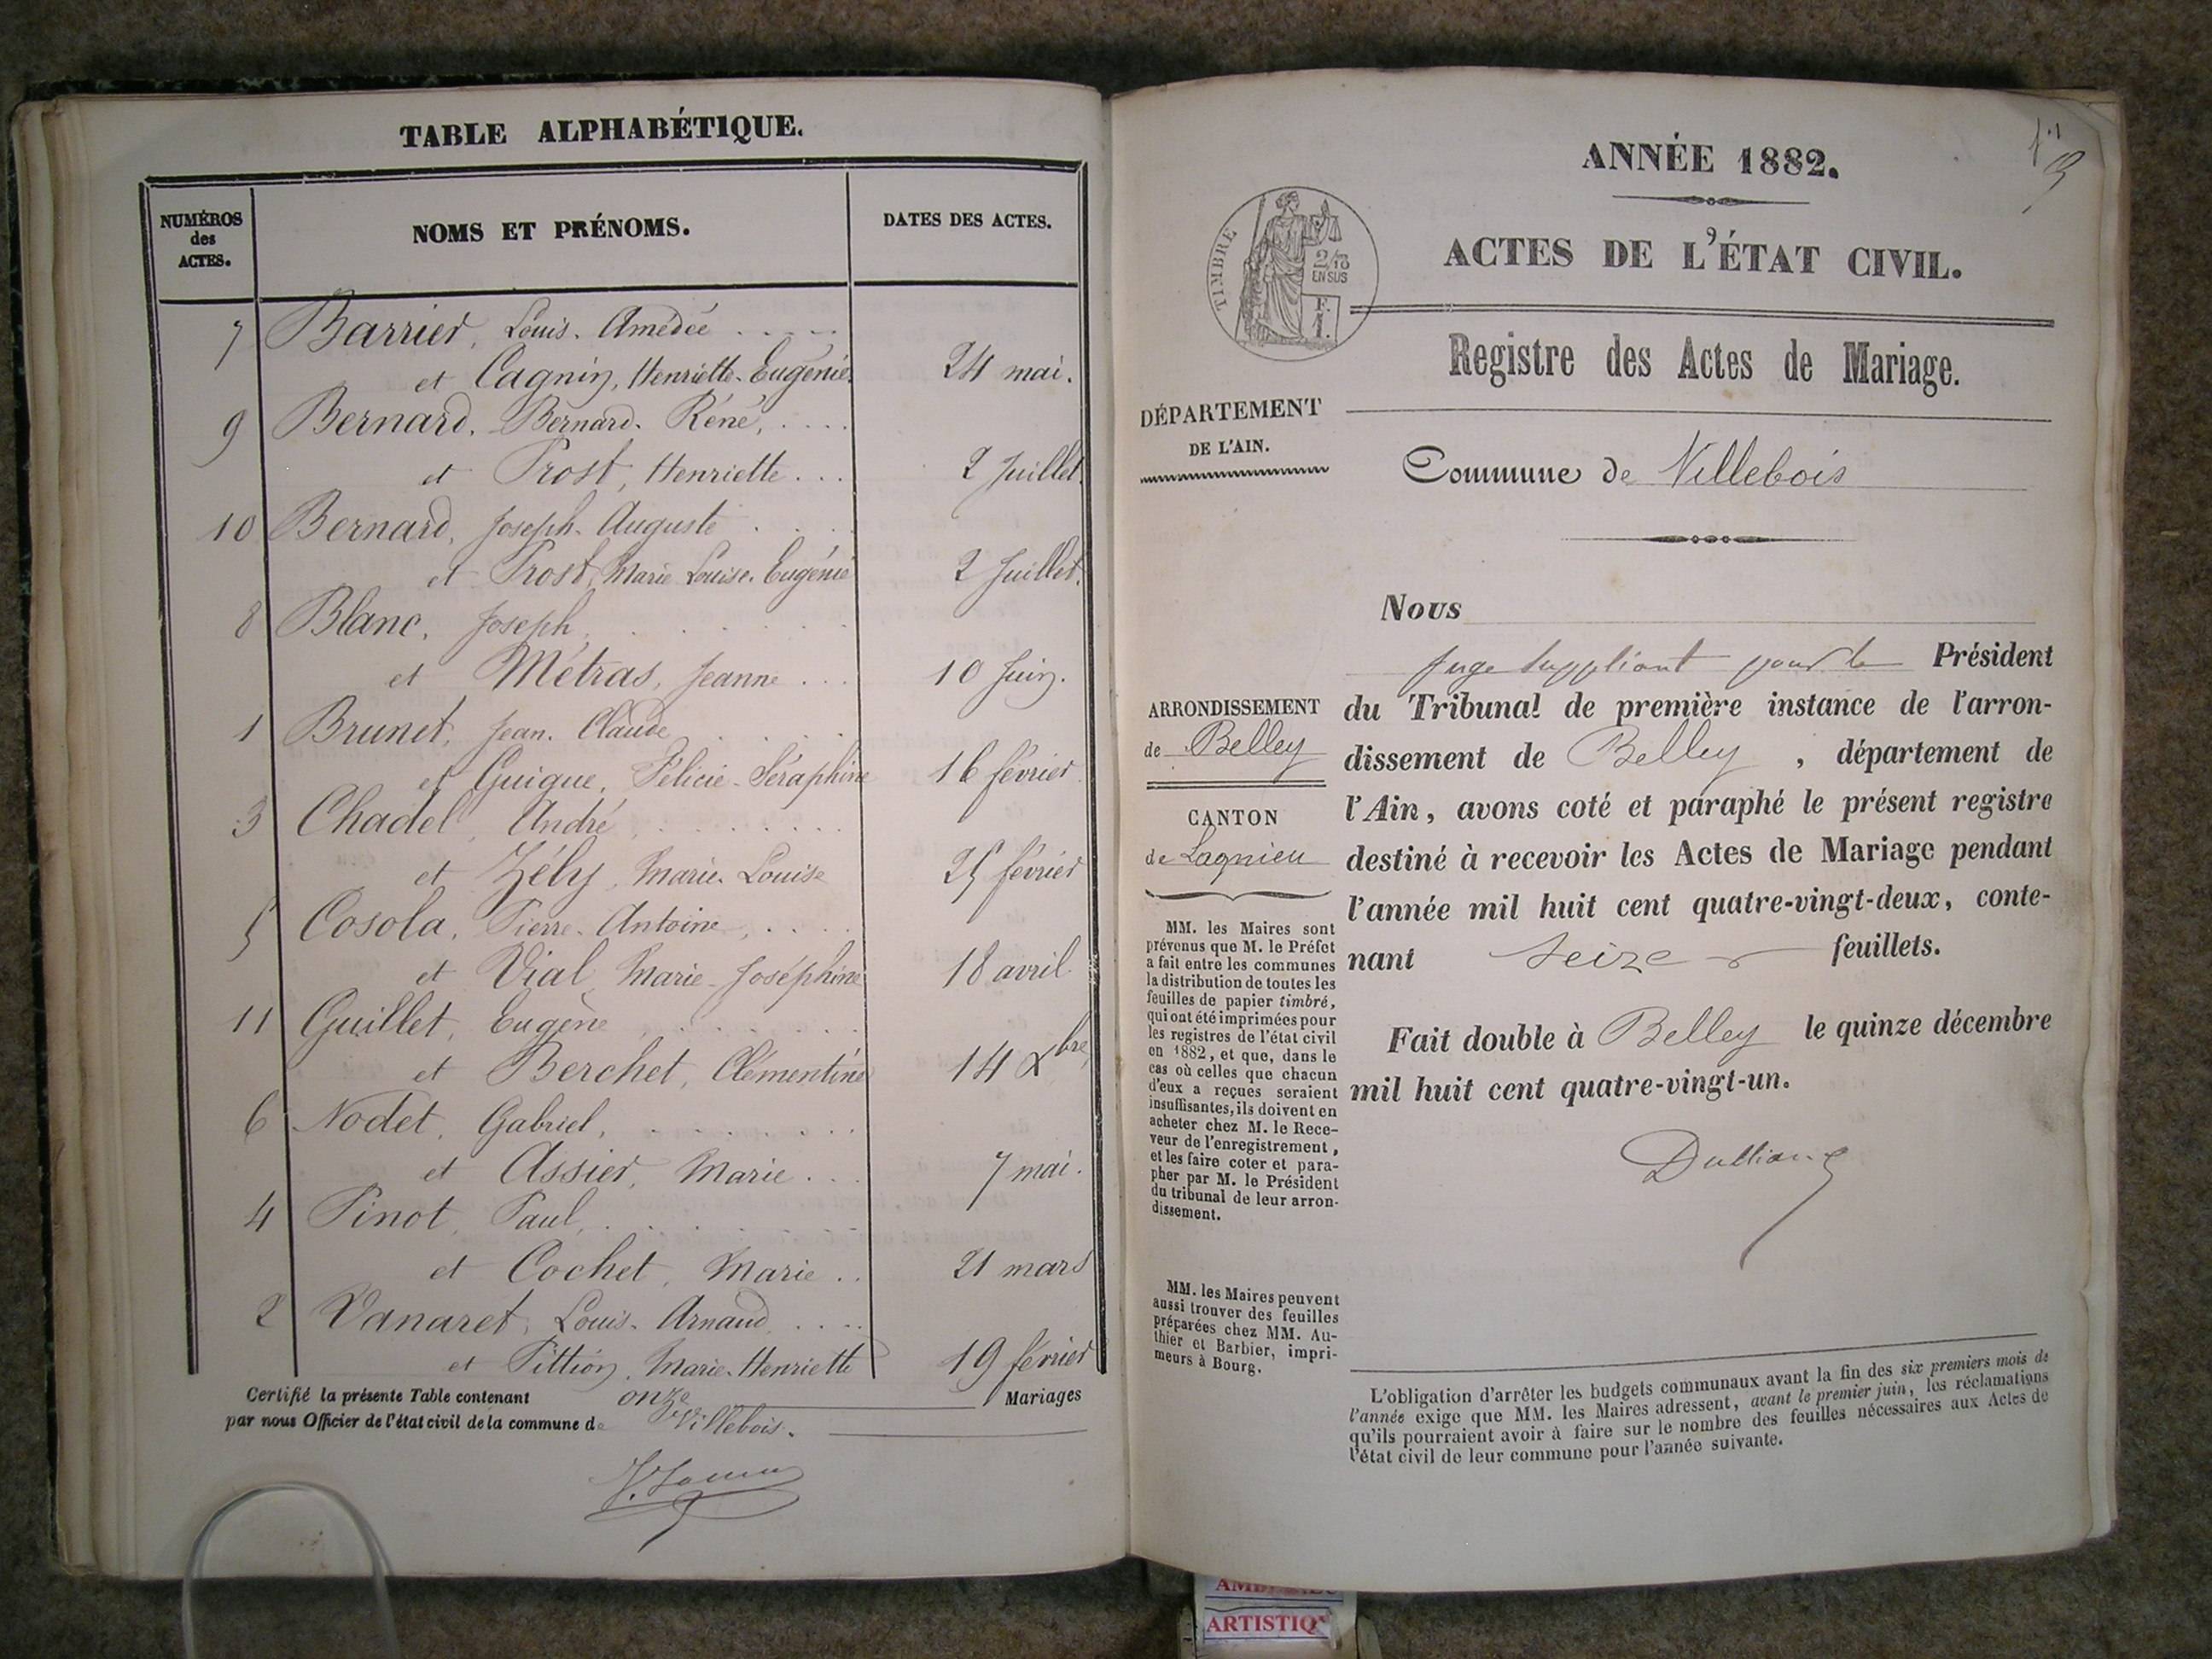 TABLE ALPHABÉTIQUE.
NUMÉROS
des
ACTES.
NOMS ET PRÉNOMS.
DATES DES ACTES.
7 Barrier, Louis. Amédée
et Cagnin, Henriette-Eugénie 24 mai.
9 Bernard, Bernard. Réné,
et Prost, Henriette 2 Juillet.
10 Bernard, Joseph-Auguste
et Prost, Marie Louise. Eugénie 2 Juillet.
8 Blanc, Joseph,
et Métras, Jeanne 10 Juin.
1 Brunet, Jean. Claude
et Guigue, Félicie-Séraphine 16 février
3 Chadel, André,
et Zély, Marie-Louise 25 février
5 Cosola, Pierre-Antoine,
et Vial, Marie-Joséphine 18 avril.
11 Guillet, Eugène,
et Berchet, Clémentine 14 Xbre
6 Nodet, Gabriel,
et Assier, Marie 7 mai.
4 Pinot, Paul,
et Cochet, Marie 21 mars
2 Vanaret, Louis-Arnaud
et Pittion, Marie-Henriette 19 février
Certifié la présente Table contenant onze Mariages
par nous Officier de l'état civil de la commune de Villebois.
ANNÉE 1882.
ACTES DE L'ÉTAT CIVIL.
TIMBRE
2/10
EN SUS
F.
1.
Registre des Actes de Mariage.
DÉPARTEMENT
DE L'AIN.
Commune de Villebois
ARRONDISSEMENT
de Belley
CANTON
de Lagnieu
MM. les Maires sont
prévenus que M. le Préfet
a fait entre les communes
la distribution de toutes les
feuilles de papier timbré,
qui ont été imprimées pour
les registres de l'état civil
en 1882, et que, dans le
cas où celles que chacun
d'eux a reçues seraient
insuffisantes, ils doivent en
acheter chez M. le Rece-
veur de l'enregistrement,
et les faire coter et para-
pher par M. le Président
du tribunal de leur arron-
dissement.
MM. les Maires peuvent
aussi trouver des feuilles
préparées chez MM. Au-
thier et Barbier, impri-
meurs à Bourg.
Nous
Juge suppléant pour le Président
du Tribunal de première instance de l'arron-
dissement de Belley, département de
l'Ain, avons coté et paraphé le présent registre
destiné à recevoir les Actes de Mariage pendant
l'année mil huit cent quatre-vingt-deux, conte-
nant seize feuillets.
Fait double à Belley le quinze décembre
mil huit cent quatre-vingt-un.
L'obligation d'arrêter les budgets communaux avant la fin des six premiers mois de
l'année exige que MM. les Maires adressent, avant le premier juin, les réclamations
qu'ils pourraient avoir à faire sur le nombre des feuilles nécessaires aux Actes de
l'état civil de leur commune pour l'année suivante.
ARTISTIQ